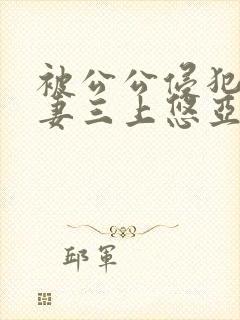 被公公侵犯
妻三上悠亚
邱军